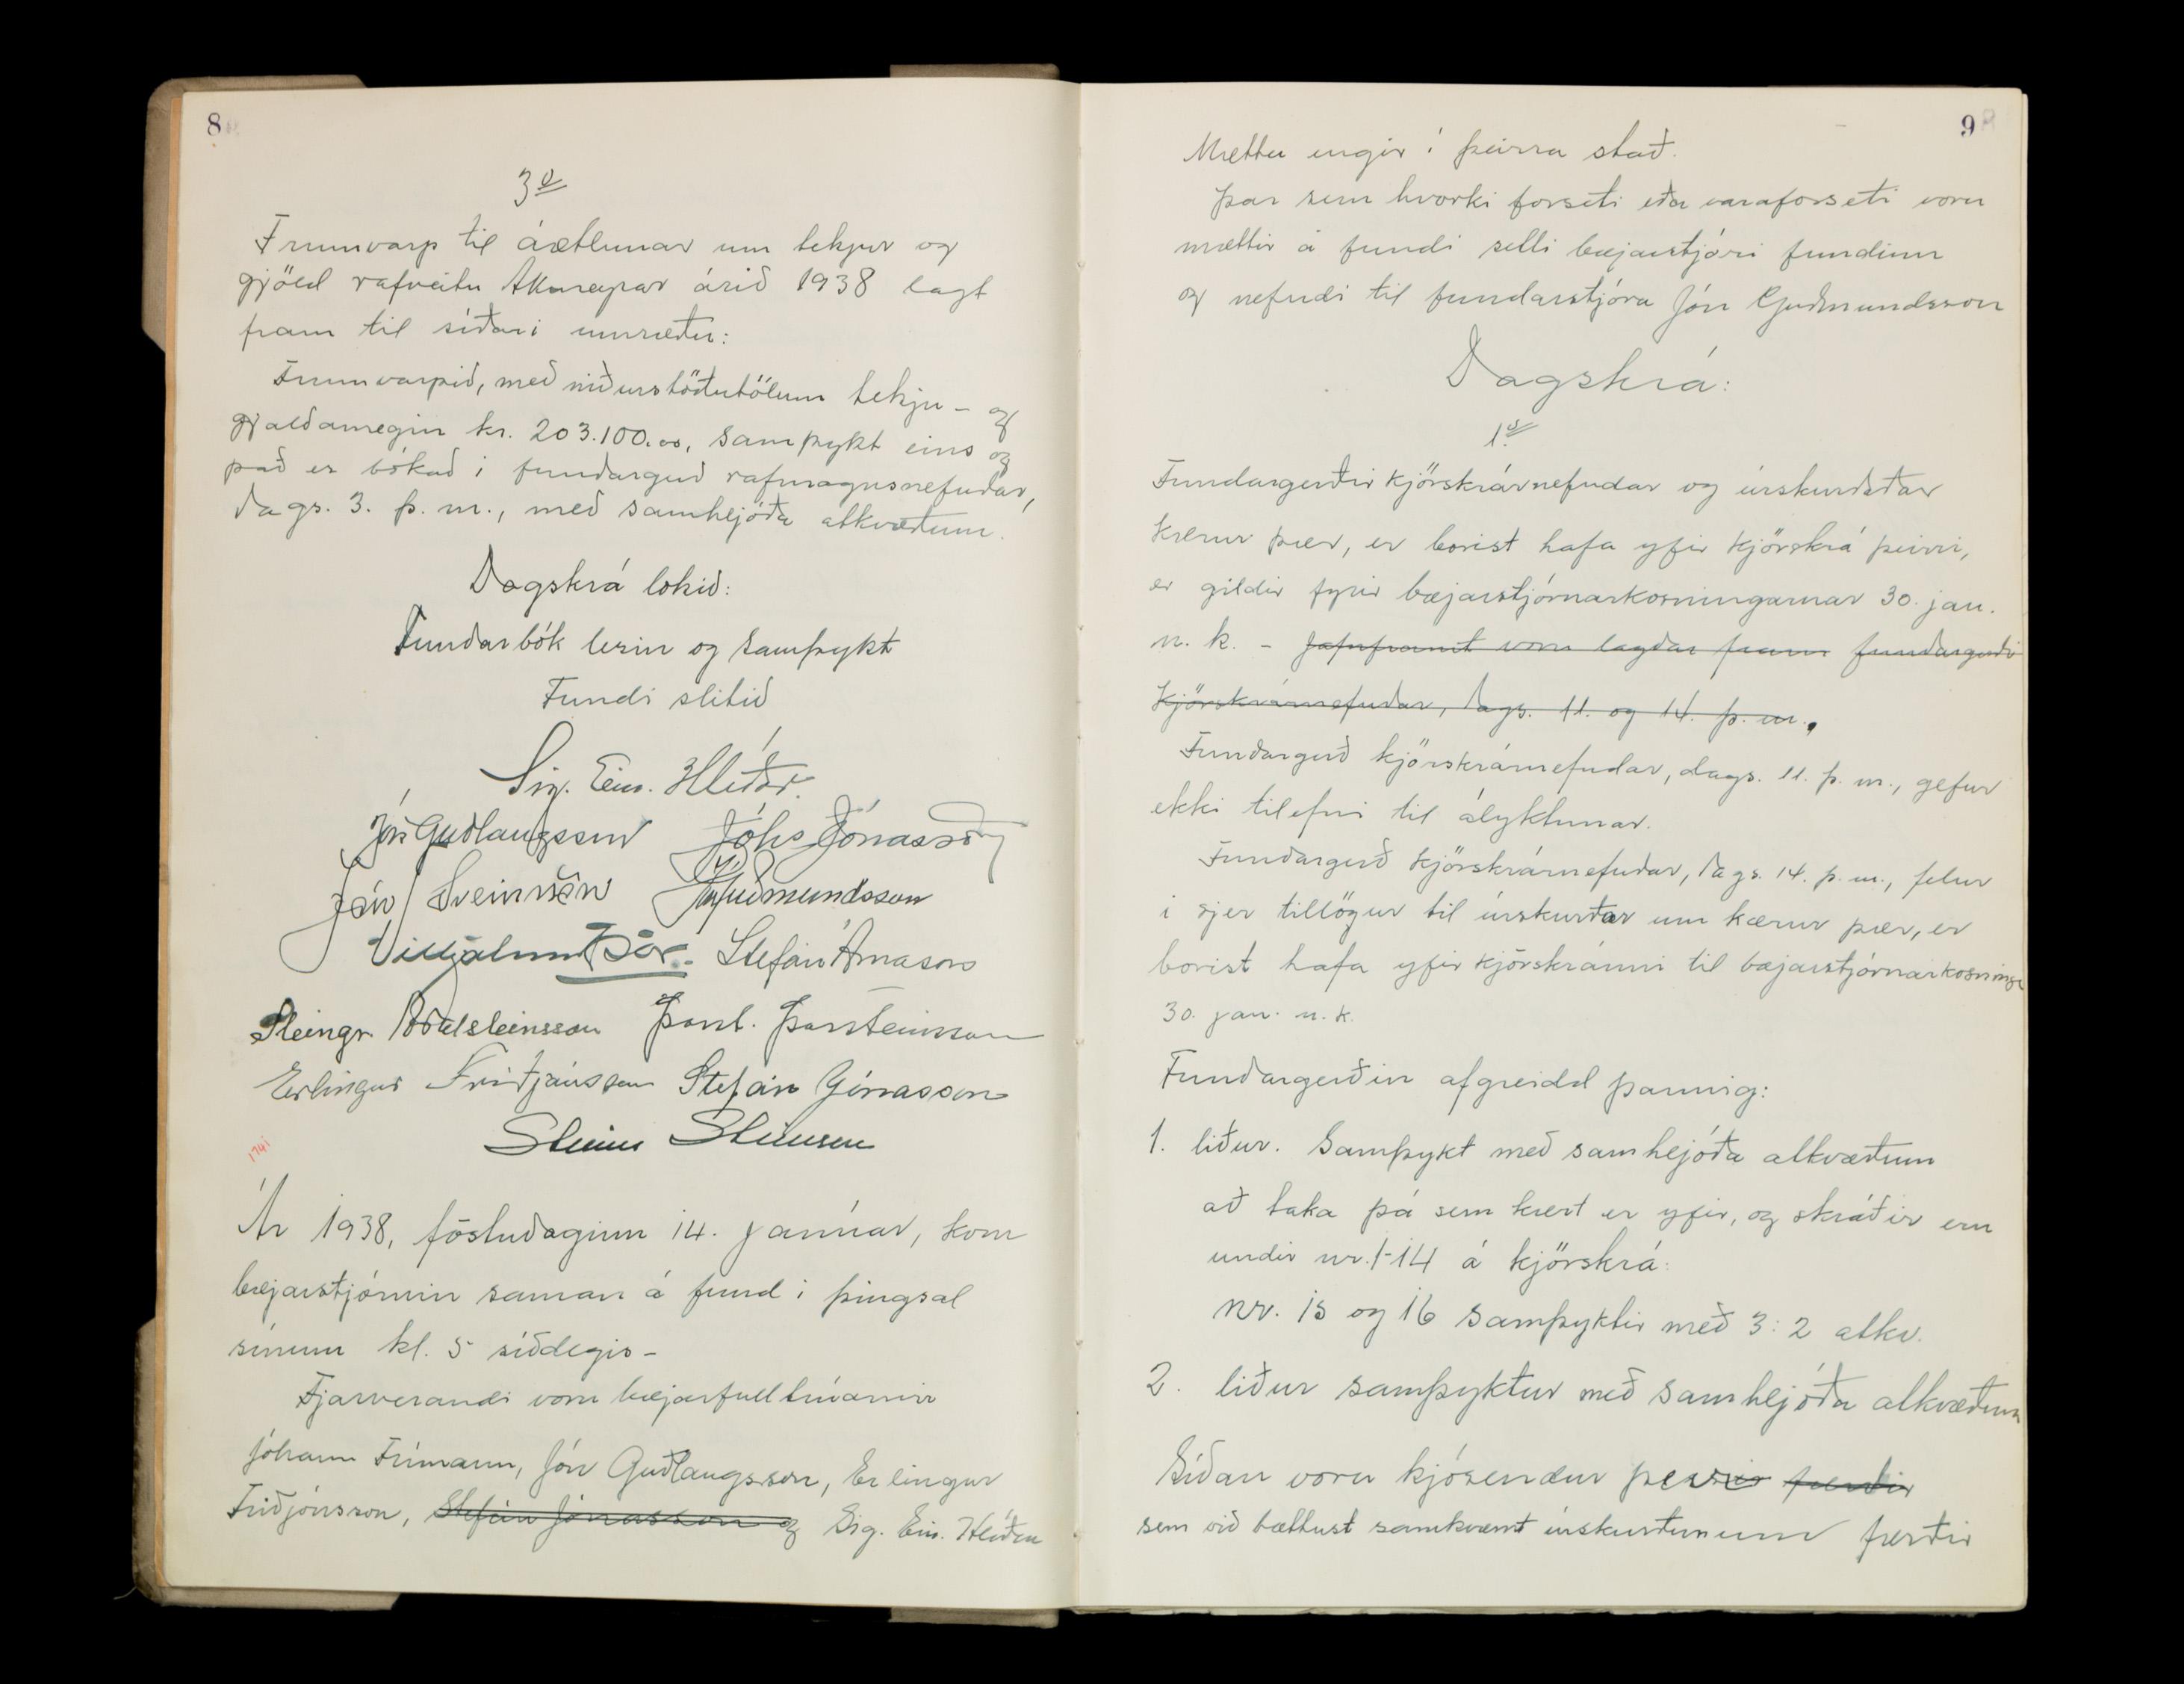 8
3º
Frumvarp til áætlunar um tekjur og
gjöld rafveitu Akureyrar árið 1938 lagt
fram til síðari umræðu:
Frumvarpið, með niðurstöðutölum tekju- og
gjaldamegin kr. 203.100.00, samþykt eins og
það er bókað í fundargerð rafmagnsnefndar,
dags. 3. þ. m., með samhljóða atkvæðum.
Dagskrá lokið:
Fundarbók lesin og samþykt
Fundi slitið
Sig. Ein. Hlíðar.
Jón Guðlaugsson Jóhs Jónasson
Jón Sveinsson Jón Guðmundsson
Vilhjálmur Þór. Stefán Árnason
Steingr. Aðalsteinsson Þorst. Þorsteinsson
Erlingur Friðjónsson Stefán Jónasson
Steinn Steinsen
174i
Ár 1938, föstudaginn 14. janúar, kom
bæjarstjórnin saman á fund í þingsal
sínum kl. 5 síðdegis-
Fjarverandi voru bæjarfulltrúarnir
Jóhann Frímann, Jón Guðlaugsson, Erlingur
Friðjónsson, Stefán Jónasson og Sig. Ein. Hlíðar
9
Mættu engir í þeirra stað.
Þar sem hvorki forseti eða varaforseti voru
mættir á fundi setti bæjarstjóri fundinn
og nefndi til fundarstjóra Jón Guðmundsson
Dagskrá:
1º
Fundargerðir kjörskrárnefndar og úrskurðaðar
kærur þær, er borist hafa yfir kjörskrá þeirri,
er gildir fyrir bæjarstjórnarkosningarnar 30. jan.
n. k. - Jafnframt voru lagðar fram fundargerðir
kjörskrárnefndar, dags. 11. og 14. þ. m.,
Fundargerð kjörskrárnefndar, dags. 11. þ. m., gefur
ekki tilefni til ályktunar.
Fundargerð kjörskrárnefndar, dags. 14. þ. m., felur
í sjer tillögur til úrskurðar um kærur þær, er
borist hafa yfir kjörskránni til bæjarstjórnarkosninga
30. jan. n. k.
Fundargerðin afgreidd þannig:
1. liður. Samþykt með samhljóða atkvæðum
að taka þá sem kært er yfir, og skráðir eru
undir nr. 1-14 á kjörskrá.
nr. 15 og 16 samþyktir með 3:2 atkv.
2. liður samþyktur með samhljóða atkvæðum
Síðan voru kjósendur þeirrir færðir
sem við bættust samkvæmt úrskurðunum færðir